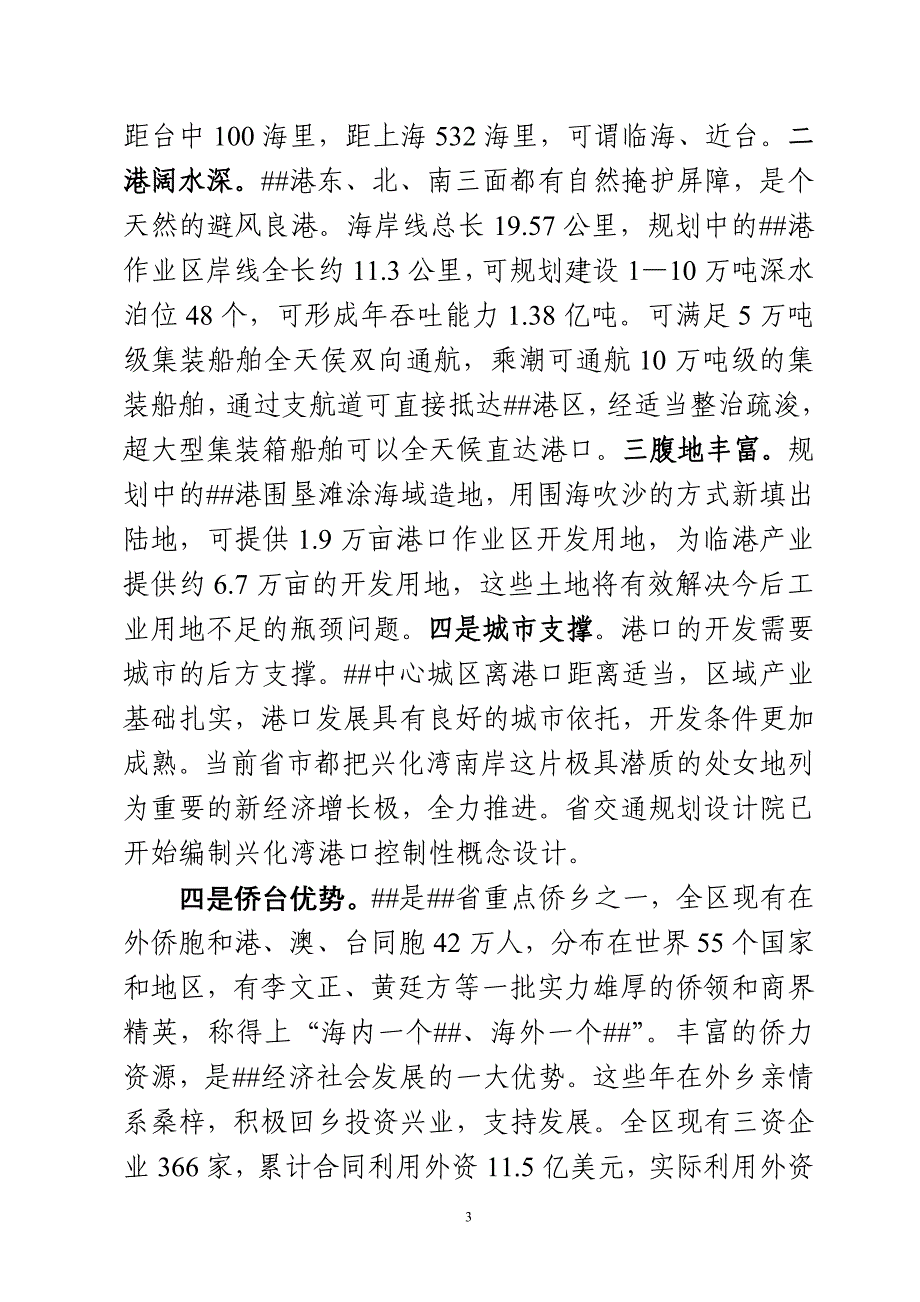 距台中 100 海里，距上海 532 海里，可谓临海、近台。二
港阔水深。##港东、北、南三面都有自然掩护屏障，是个
天然的避风良港。海岸线总长 19.57 公里，规划中的##港
作业区岸线全长约 11.3 公里，可规划建设 1—10 万吨深水
泊位 48 个，可形成年吞吐能力 1.38 亿吨。可满足 5 万吨
级集装船舶全天侯双向通航，乘潮可通航 10 万吨级的集
装船舶，通过支航道可直接抵达##港区，经适当整治疏浚，
超大型集装箱船舶可以全天候直达港口。三腹地丰富。规
划中的##港围垦滩涂海域造地，用围海吹沙的方式新填出
陆地，可提供 1.9 万亩港口作业区开发用地，为临港产业
提供约 6.7 万亩的开发用地，这些土地将有效解决今后工
业用地不足的瓶颈问题。四是城市支撑。港口的开发需要
城市的后方支撑。##中心城区离港口距离适当，区域产业
基础扎实，港口发展具有良好的城市依托，开发条件更加
成熟。当前省市都把兴化湾南岸这片极具潜质的处女地列
为重要的新经济增长极，全力推进。省交通规划设计院已
开始编制兴化湾港口控制性概念设计。
四是侨台优势。##是##省重点侨乡之一，全区现有在
外侨胞和港、澳、台同胞 42 万人，分布在世界 55 个国家
和地区，有李文正、黄廷方等一批实力雄厚的侨领和商界
精英，称得上“海内一个##、海外一个##”。丰富的侨力
资源，是##经济社会发展的一大优势。这些年在外乡亲情
系桑梓，积极回乡投资兴业，支持发展。全区现有三资企
业 366 家，累计合同利用外资 11.5 亿美元，实际利用外资
3